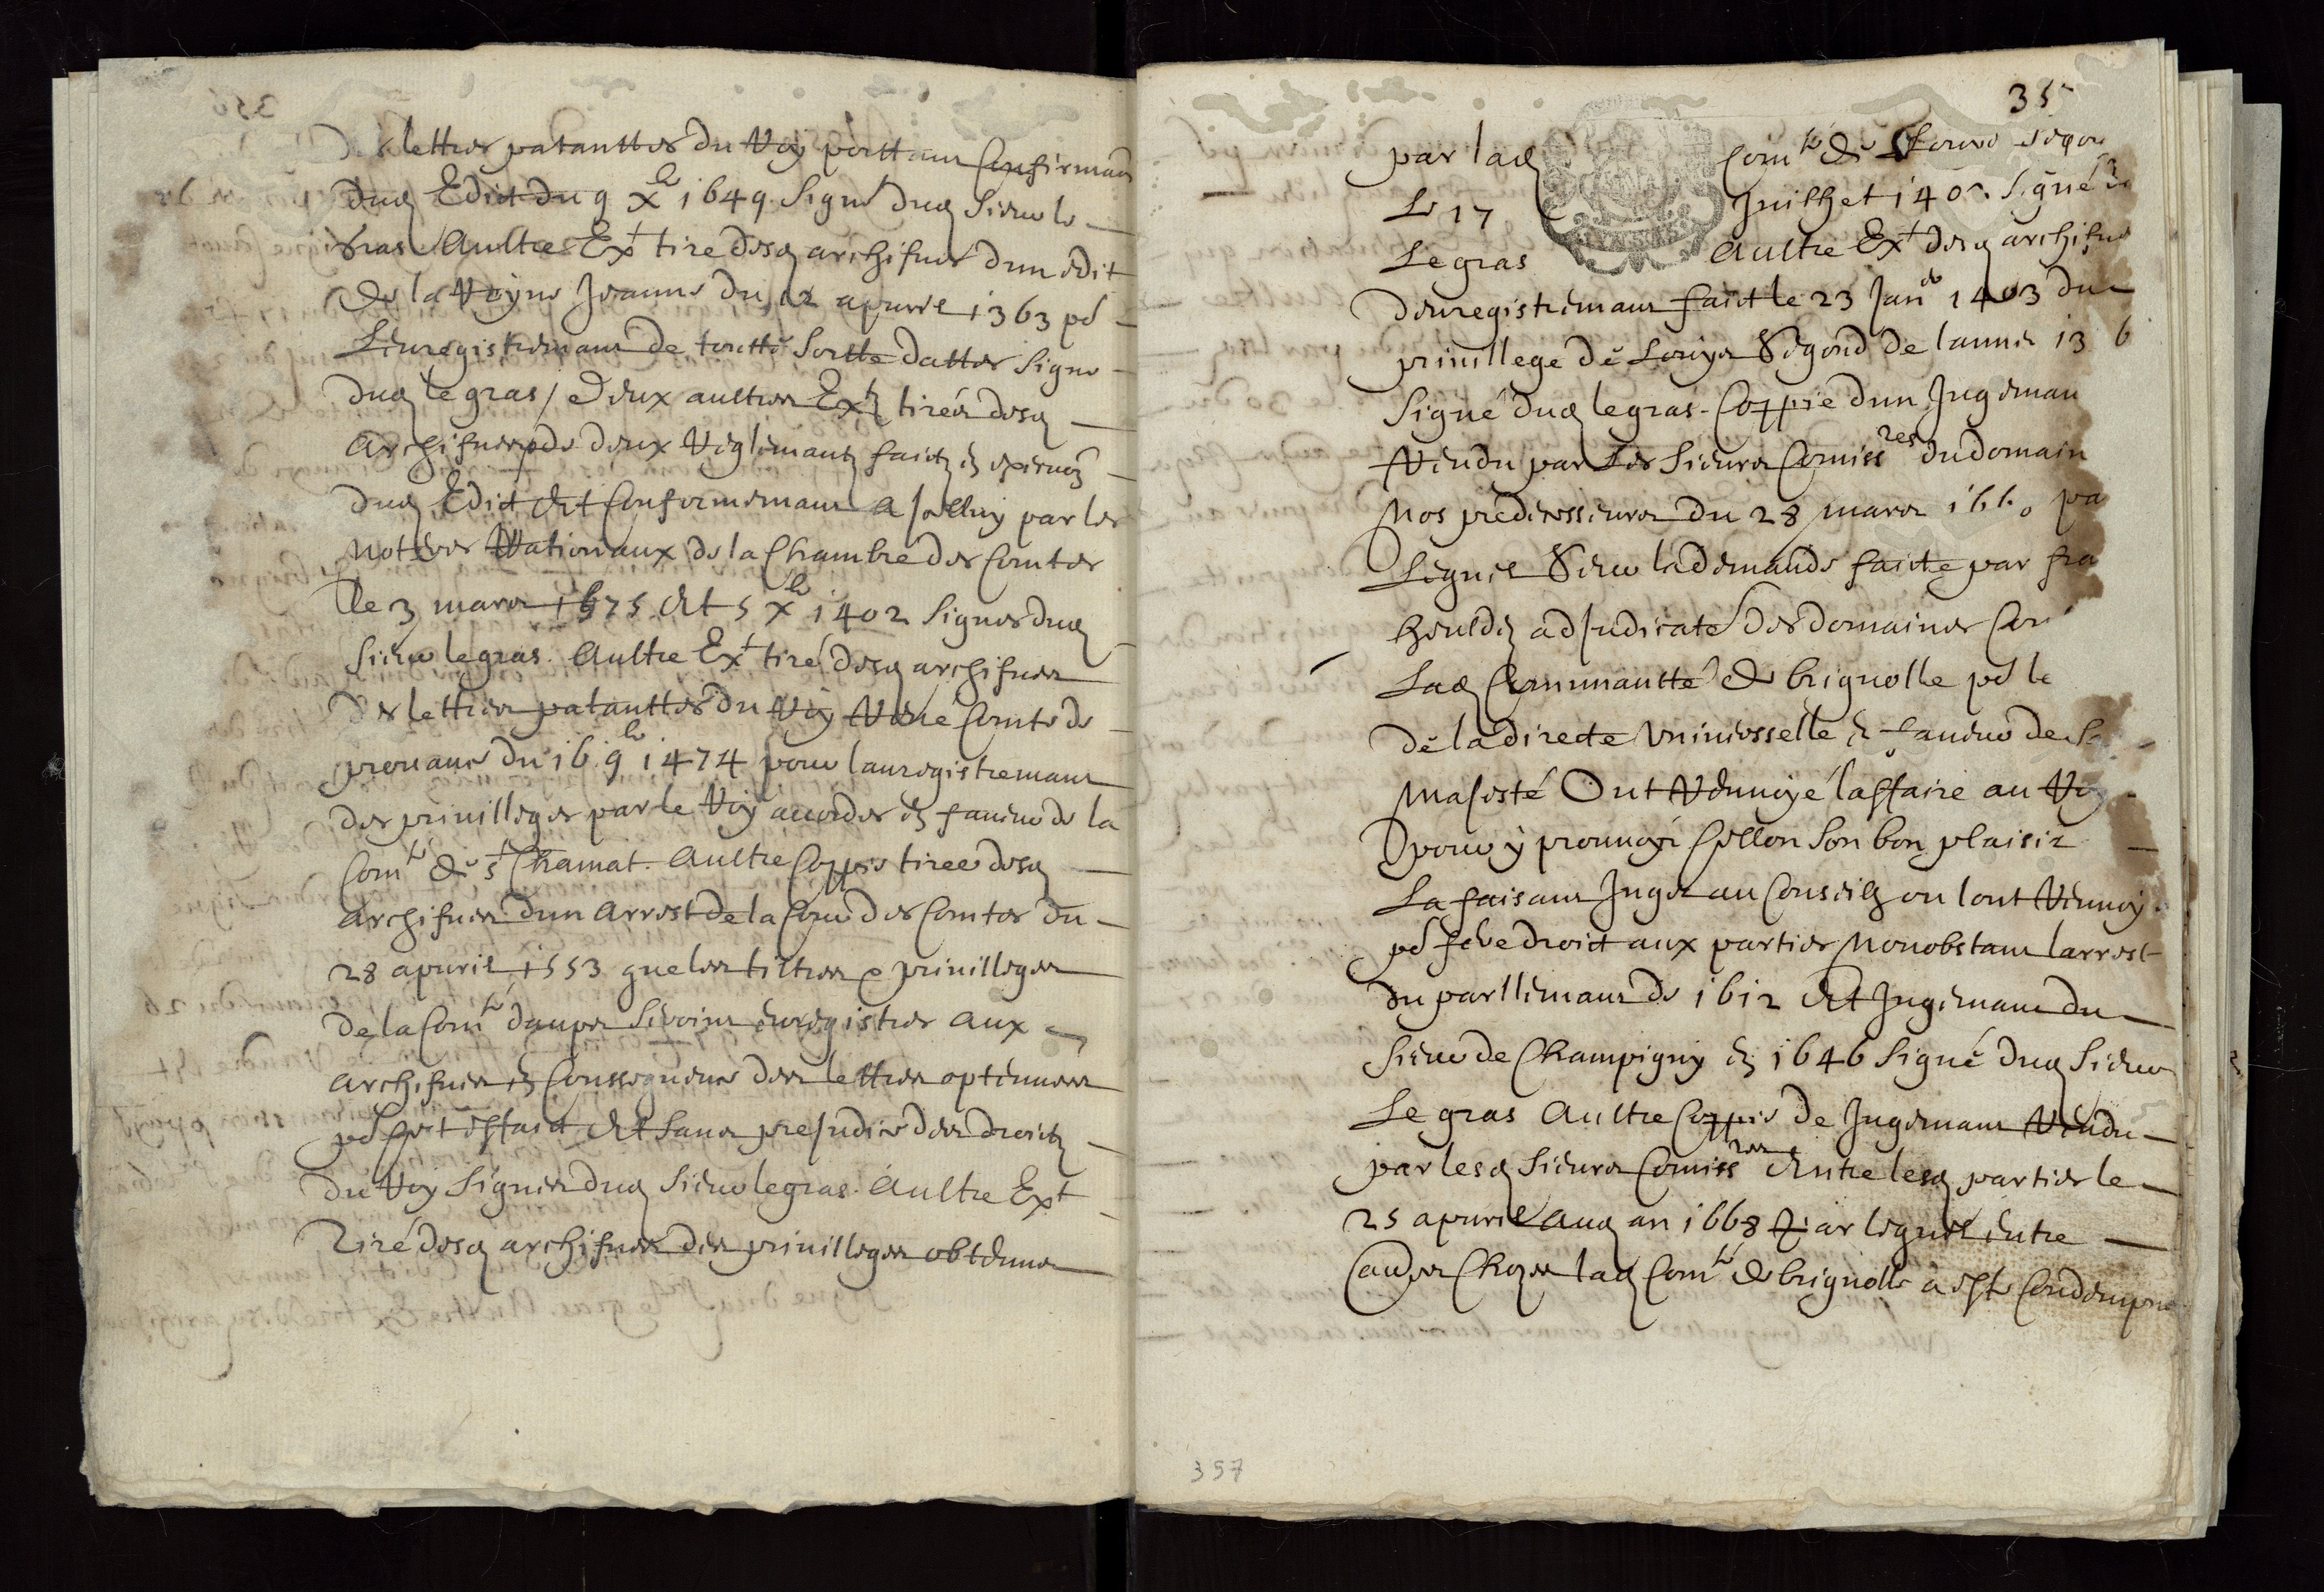 Des lettres patanttes du Roy portant Confirmaôn
dud Edict du 9 xbre 1649. Signé dud Sieur le
gras Aultre Ext tiré desd archifues dun edit
de la Royne Jeanne du 12 apuril 1363 pd
Lenregistremant de toutte Sortte dattes Signé
dud le gras / Deux aultres Extz tirés desd
Archifues pd deux Reglemantz faictz en
dud Edict Et Conformemant a Jcelluy par les
Mes Rationaux de la Chambre des Comtes
le 3 mars 1375 Et 5 xbre 1402 Signes dud
Sieur legras. Aultre Ext tiré desd archifues
Des lettres patanttes du Roy Réné Comte de
prouance du 16 9bre 1474 pour lanregistremant
des priuilleges par le Roy accordes en faueur de la
Comté de St Chamat. Aultre Coppie tirée desd
Archifues dun Arrest de la Cour des Comtes du
28 apuril 1553 que les tiltres e priuilleges
De la Comté daups Seroint enregistres aux
archifues en Conssequence des lettres optennues
pd effaict Et Sans preJudice des droictz
Du Roy Signés dud Sieur legras. Aultre Ext
Tiré desd archifues des priuilleges obtenus
35
par lad Comté de
Le 17 Juilhet 140 Signé
Le gras Aultre Ext desd archifues
Denregistremant faict le 23 Janer 1403 du
priuillege de Louys Segond de lannée 13 6
Signé dud legras. Coppie dun Jugeman
Rendu par Les Sieurs Comissres du domain
Nos predecesseurs du 28 mars 1660 pa
Lequel Seur la demande faicte par fra
adJudicaté des domaines Con
Lad Communautté de brignolle pd le
De la directe Vniuersselle en faueur de Sa
MaJesté Ont Renuoyé laffaire au Roy
pour y prouuoyr Sellon Son bon plaisir
La faisant Juger au Conseilh ou lont Renuoyé
pd droict aux parties Nonobstant larrest
du parllemant de 1612 Et Jugemant du
Sieur de Champigny en 1646 Signé dud Sieur
Le gras Aultre Coppie de Jugemant Rendu
par lesd Sieurs Comissres Entre lesd parties le
25 apuril aud an 1668 par lequel entre
aultres Chozes lad Comté de brignolle a esté Condempné
357